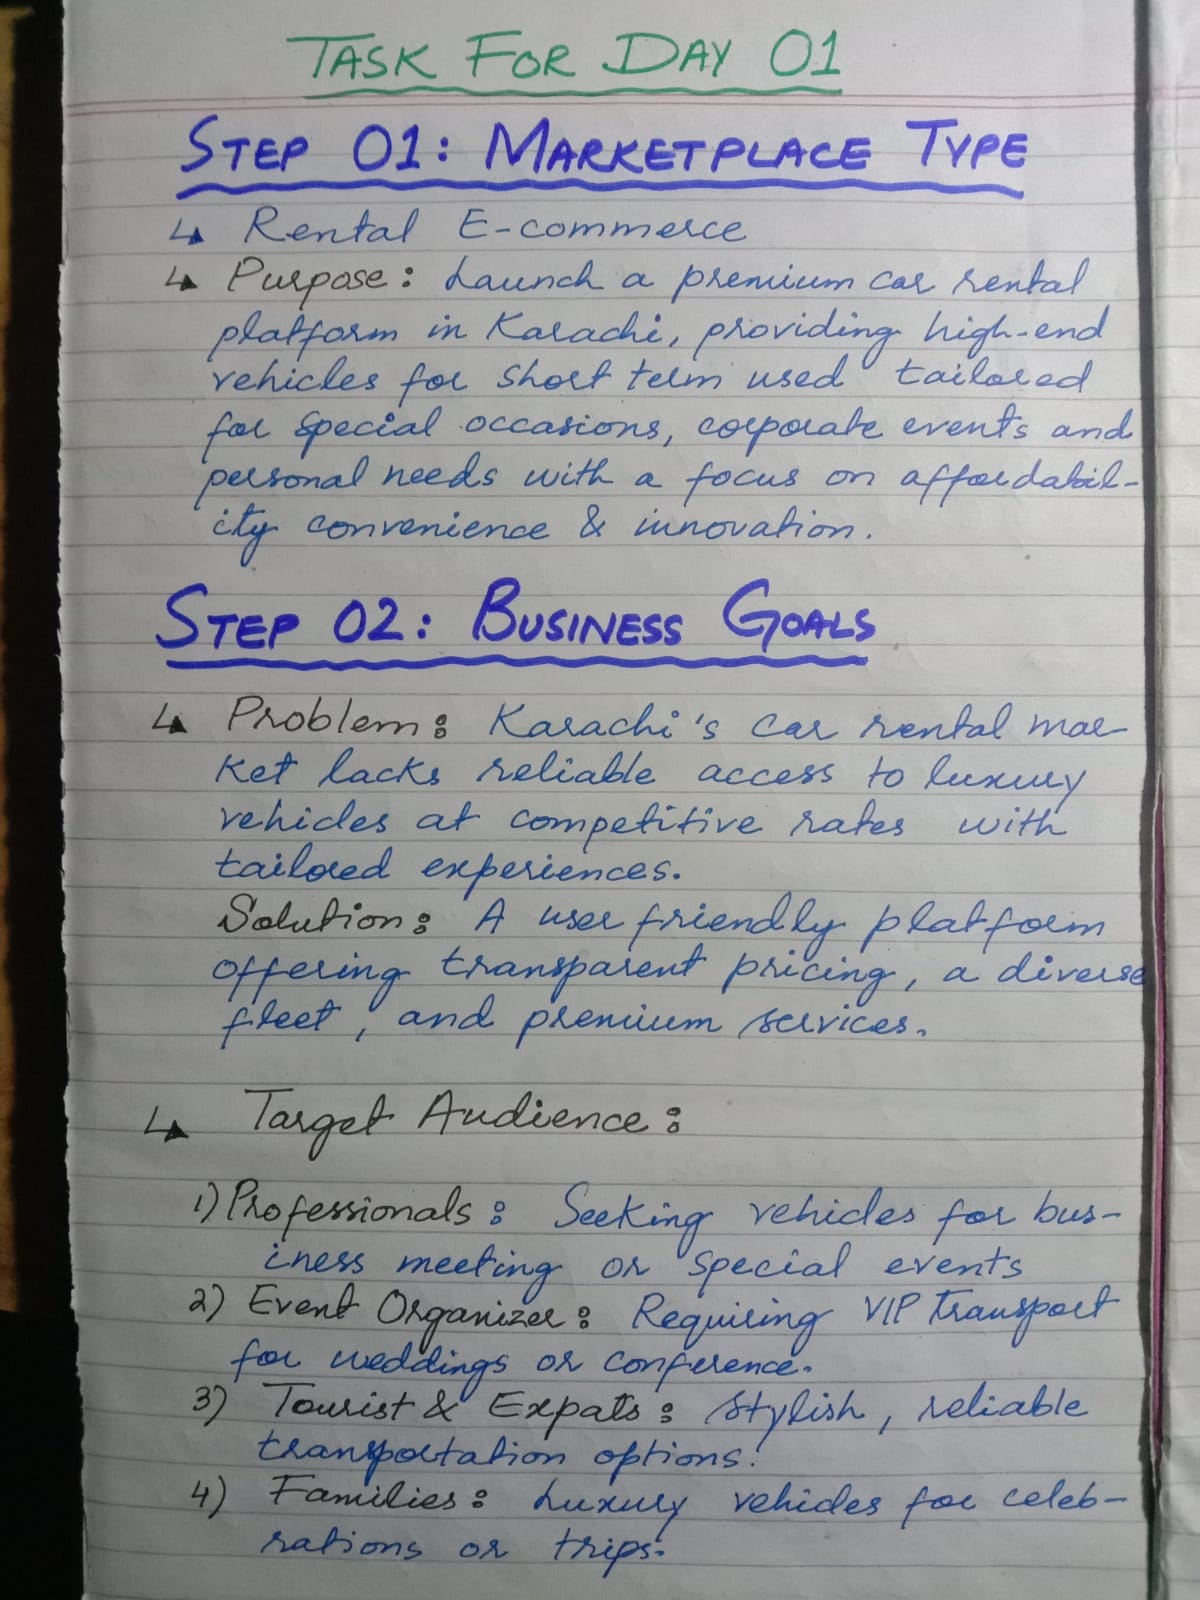 TASK FOR DAY 01
STEP 01: MARKETPLACE TYPE
↳ Rental E-commerce
↳ Purpose: Launch a premium car rental
platform in Karachi, providing high-end
vehicles for short term used tailored
for special occasions, corporate events and
personal needs with a focus on affordabil-
ity convenience & innovation.
STEP 02: BUSINESS GOALS
↳ Problem: Karachi's car rental mar-
ket lacks reliable access to luxury
vehicles at competitive rates with
tailored experiences.
Solution: A user friendly platform
offering transparent pricing, a diverse
fleet, and premium services.
↳ Target Audience:
1) Professionals: Seeking vehicles for bus-
iness meeting or special events
2) Event Organizer: Requiring VIP transport
for weddings or conference.
3) Tourist & Expats: Stylish, reliable
transportation options.
4) Families: Luxury vehicles for celeb-
rations or trips.